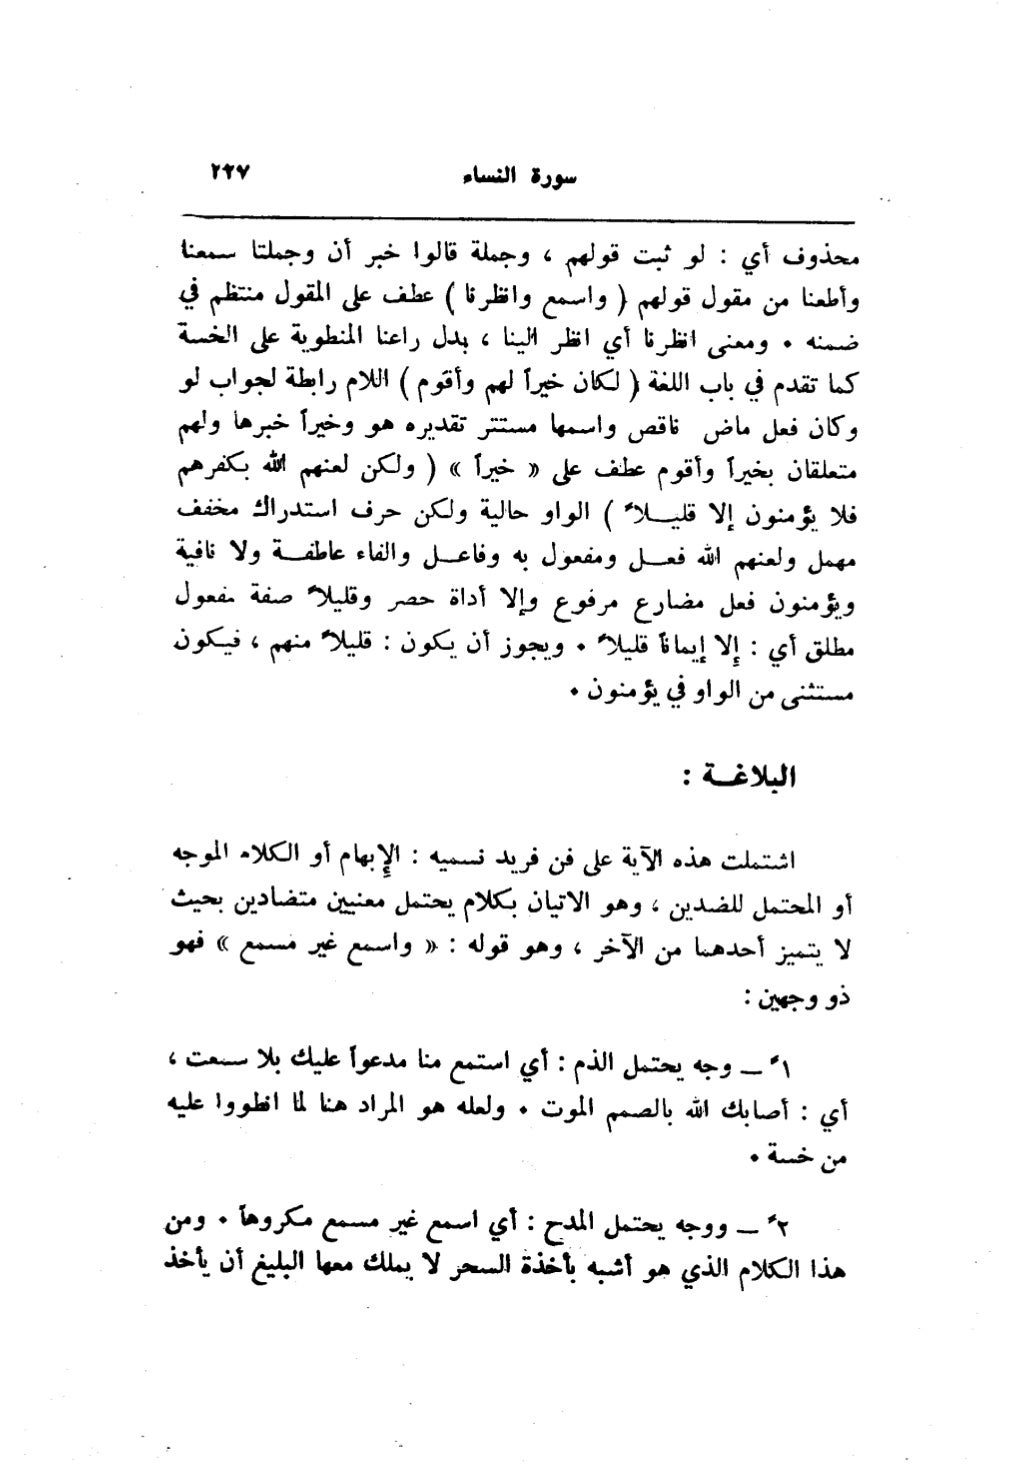 سورة النساء ٢٢٧
محذوف أي : لو ثبت قولهم ، وجملة قالوا خبر أن وجملتا سمعنا
وأطعنا من مقول قولهم ( واسمع وانظرنا ) عطف على المقول منتظم في
ضمنه ٠ ومعنى انظرنا أي انظر الينا ، بدل راعنا المنطوية على الخسة
كما تقدم في باب اللغة ( لكان خيراً لهم وأقوم ) اللام رابطة لجواب لو
وكان فعل ماض ناقص واسمها مستتر تقديره هو وخيراً خبرها ولهم
متعلقان بخيراً وأقوم عطف على « خيراً » ( ولكن لعنهم الله بكفرهم
فلا يؤمنون إلا قليــلاً ) الواو حالية ولكن حرف استدراك مخفف
مهمل ولعنهم الله فعــل ومفعول به وفاعــل والفاء عاطفــة ولا نافية
ويؤمنون فعل مضارع مرفوع وإلا أداة حصر وقليلاً صفة مفعول
مطلق أي : إلا إيماناً قليلاً ٠ ويجوز أن يكون : قليلاً منهم ، فيكون
مستثنى من الواو في يؤمنون ٠
البلاغــة :
اشتملت هذه الآية على فن فريد نسميه : الإبهام أو الكلام الموجه
أو المحتمل للضدين ، وهو الاتيان بكلام يحتمل معنيين متضادين بحيث
لا يتميز أحدهما من الآخر ، وهو قوله : « واسمع غير مسمع » فهو
ذو وجهين :
١ً ــ وجه يحتمل الذم : أي استمع منا مدعواً عليك بلا سمعت ،
أي : أصابك الله بالصمم الموت ٠ ولعله هو المراد هنا لما انطووا عليه
من خسة ٠
٢ً ــ ووجه يحتمل المدح : أي اسمع غير مسمع مكروهاً ٠ ومن
هذا الكلام الذي هو أشبه بأخذة السحر لا يملك معها البليغ أن يأخذ